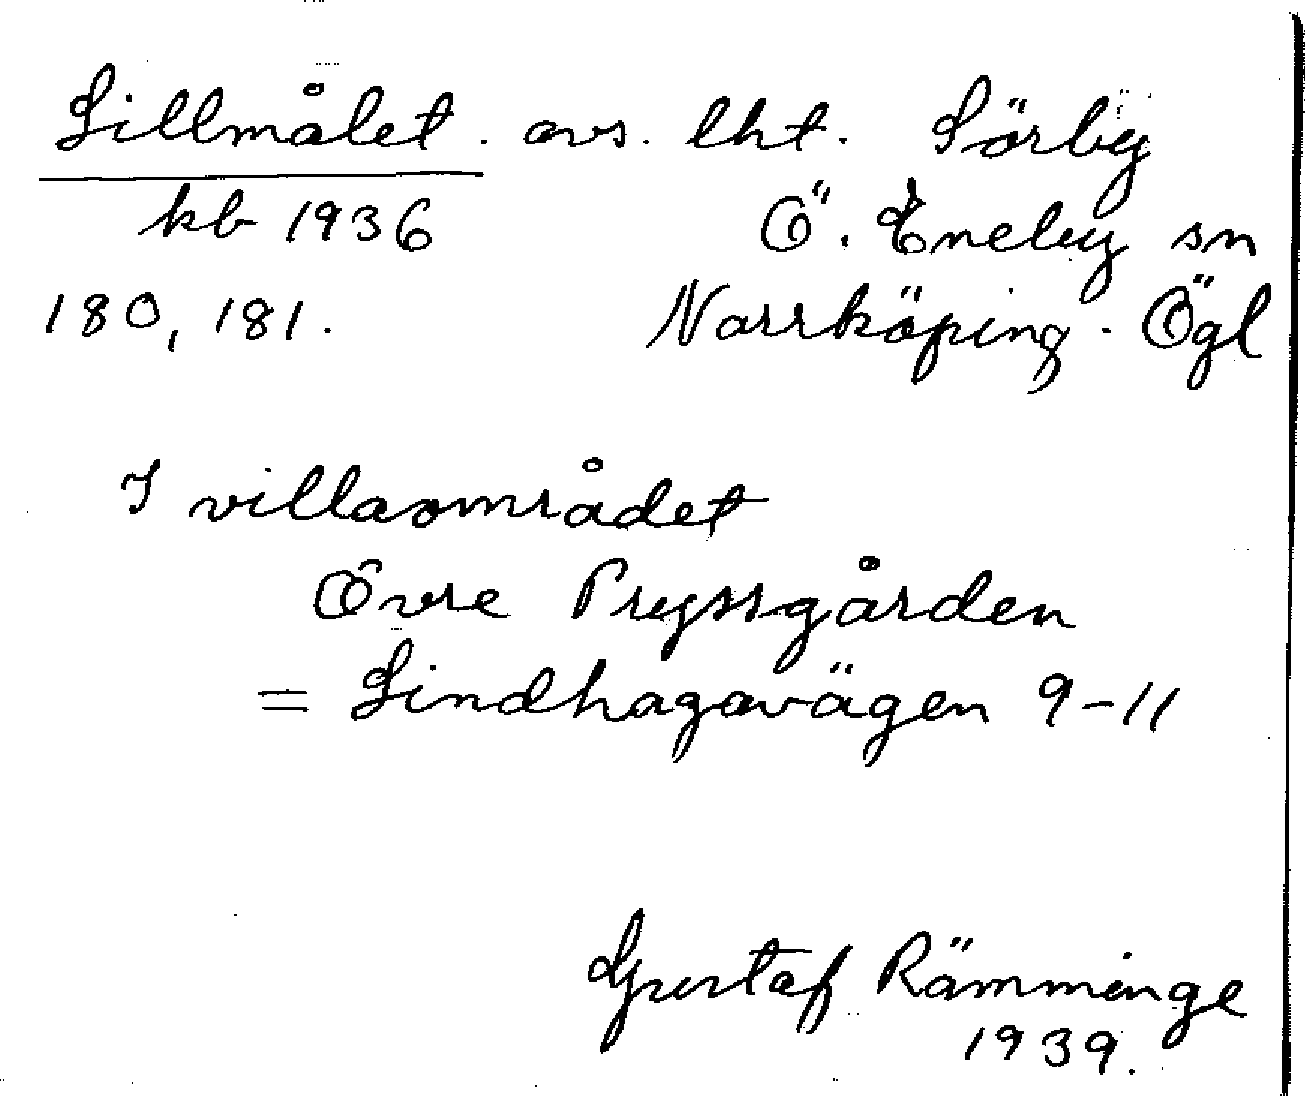 Lillmålet. avs. lht. Sörby
kb 1936 Ö. Eneby sn
180, 181. Norrköping. Ögl
I villaområdet
Övre Pryssgården
= Lindhagavägen 9-11
Gustaf Rämminge
1939.